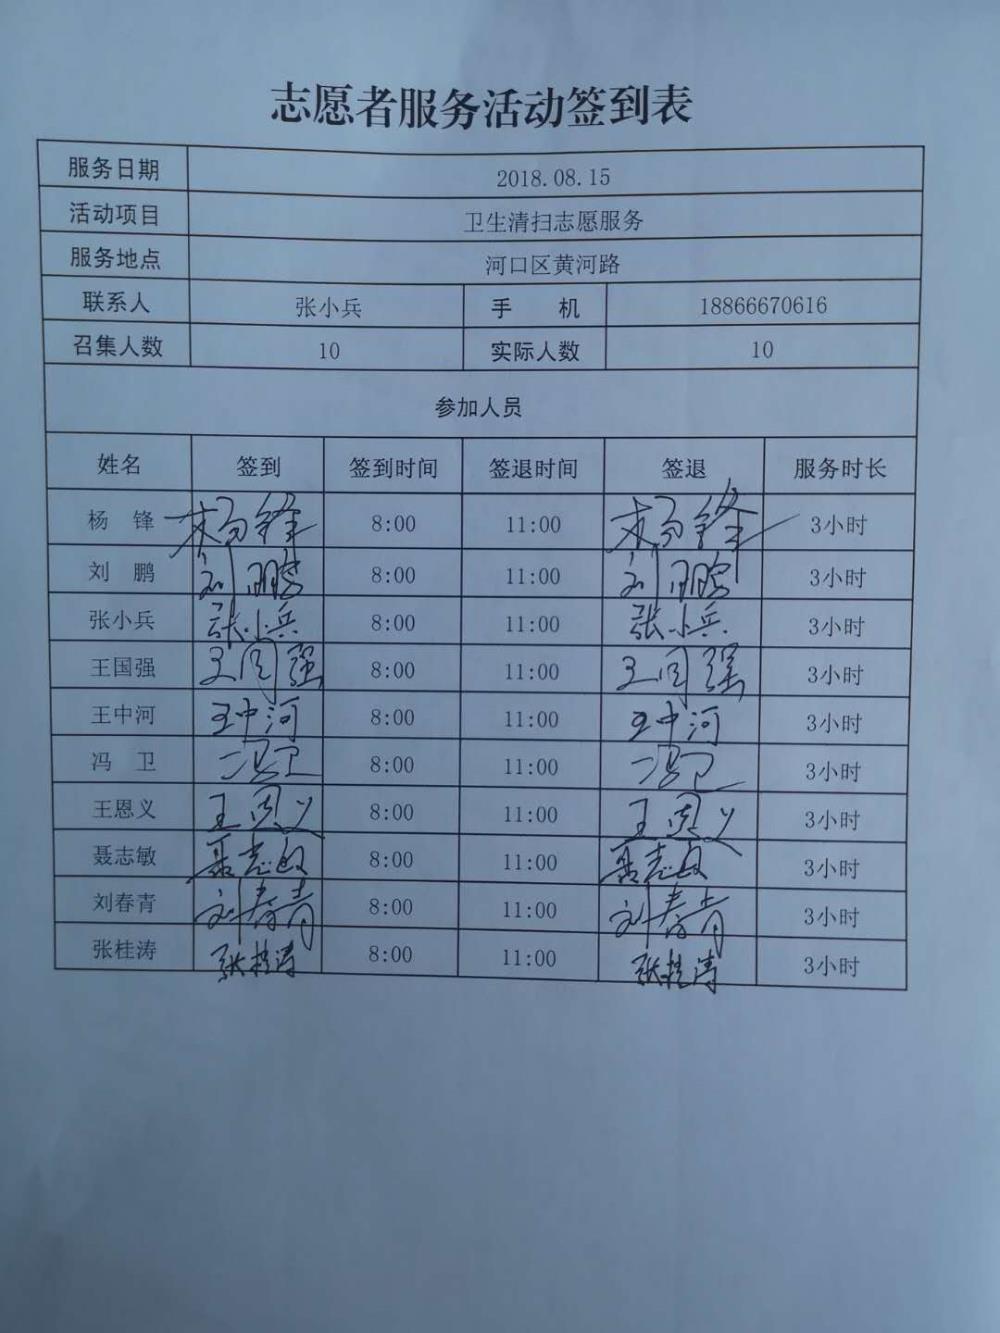 志愿者服务活动签到表
服务日期 2018.08.15
活动项目 卫生清扫志愿服务
服务地点 河口区黄河路
联系人 张小兵 手 机 18866670616
召集人数 10 实际人数 10
参加人员
姓名 签到 签到时间 签退时间 签退 服务时长
杨 锋 杨锋 8:00 11:00 杨锋 3小时
刘 鹏 刘鹏 8:00 11:00 刘鹏 3小时
张小兵 张小兵 8:00 11:00 张小兵 3小时
王国强 王国强 8:00 11:00 王国强 3小时
王中河 王中河 8:00 11:00 王中河 3小时
冯 卫 冯卫 8:00 11:00 冯卫 3小时
王恩义 王恩义 8:00 11:00 王恩义 3小时
聂志敏 聂志敏 8:00 11:00 聂志敏 3小时
刘春青 刘春青 8:00 11:00 刘春青 3小时
张桂涛 张桂涛 8:00 11:00 张桂涛 3小时